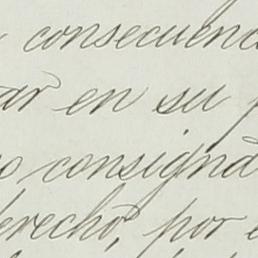 consecuenc
ar en su
o consigna
derecho, por e